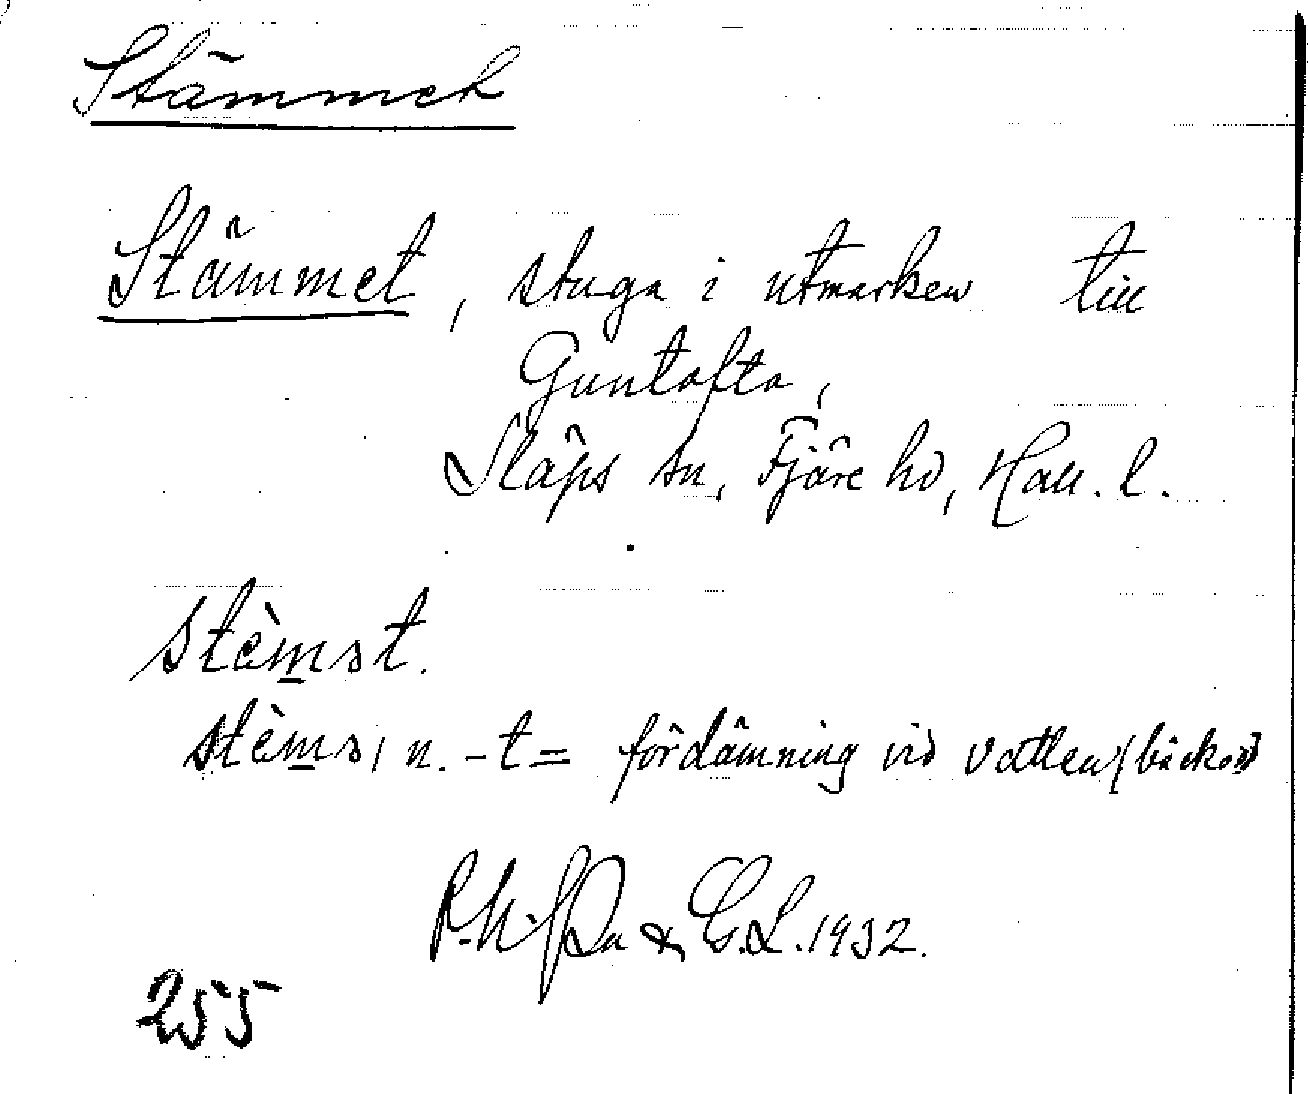 Stämmet
Stämmet, stuga i utmarken till
Guntofta,
Släps sn, Fjäre hd, Hall. l.
stèmst.
stèms, n. -t = fördämning vid vatten (bäckar)
& G.L. 1932.
255